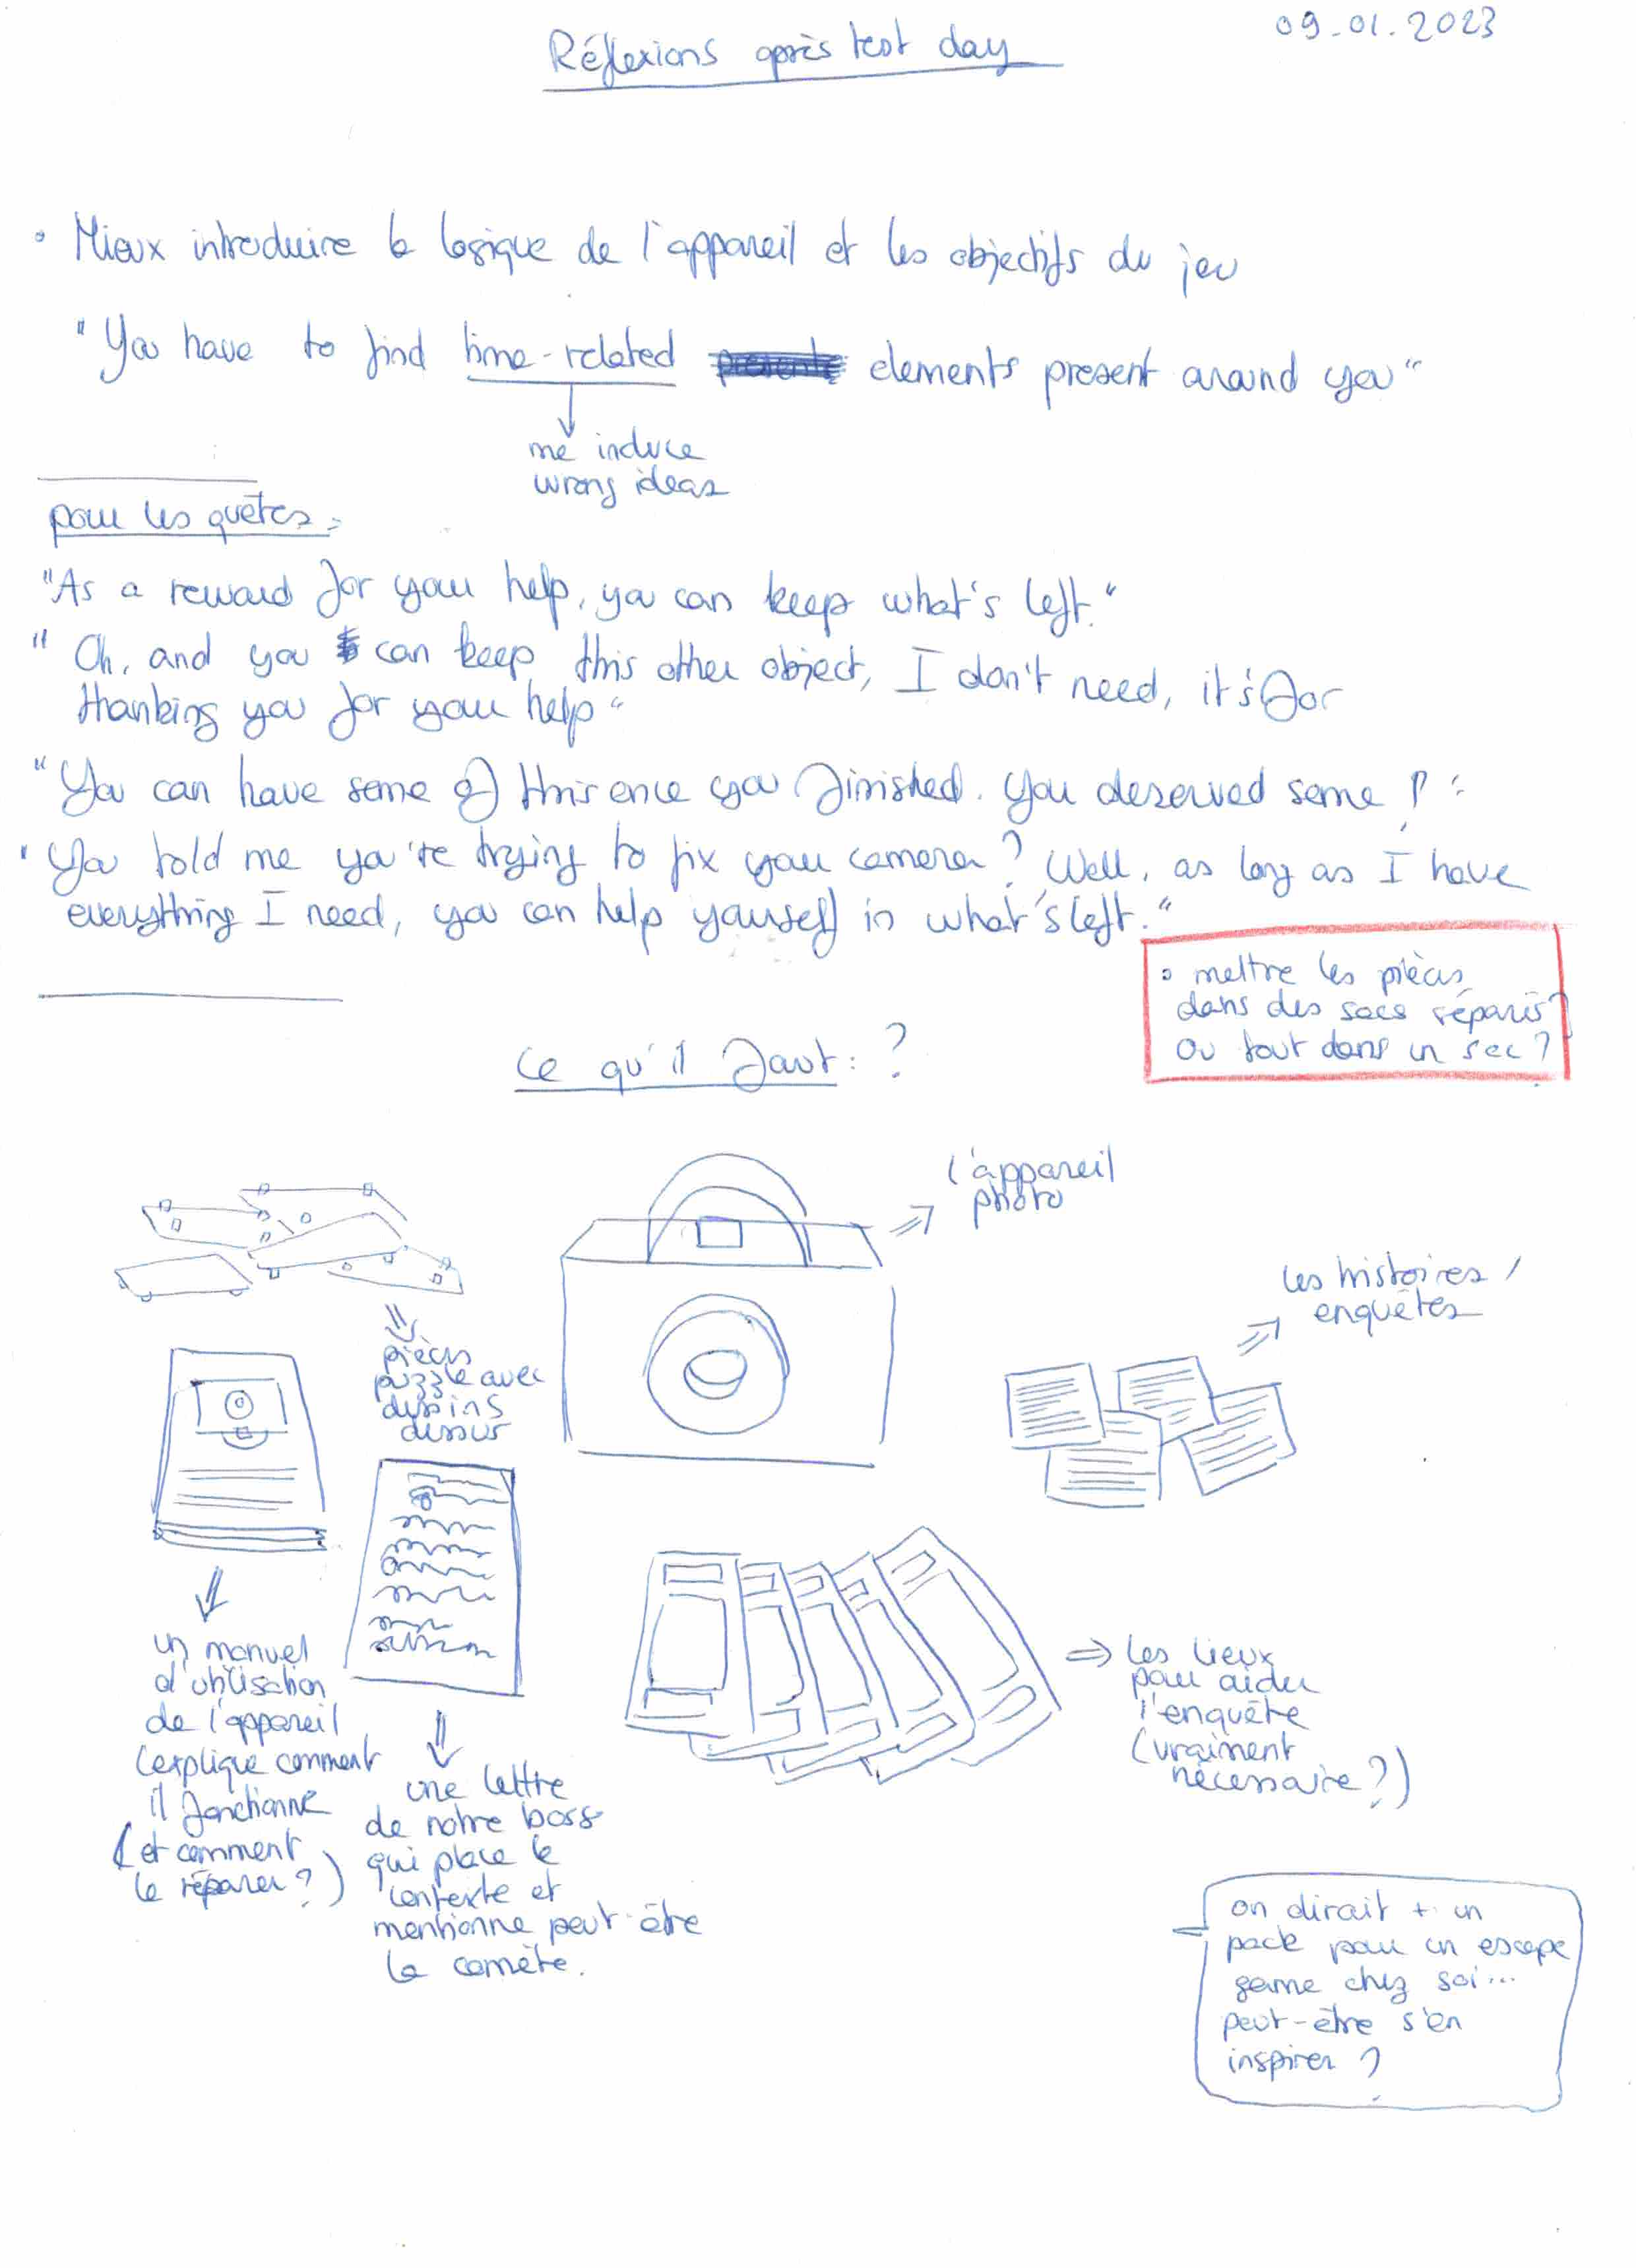 Réflexions après test day
09.01.2023
• Mieux introduire la logique de l'appareil et les objectifs du jeu
"You have to find time-related elements present around you"
me induce
wrong ideas
pour les quêtes :
"As a reward for your help, you can keep what's left."
"Oh, and you can keep this other object, I don't need, it's for
thanking you for your help"
"You can have some of this once you finished. You deserved some !"
"You told me you're trying to fix your camera? Well, as long as I have
everything I need, you can help yourself in what's left."
• mettre les pièces
dans des sacs séparés
ou tout dans un sac ?
Ce qu'il faut : ?
l'appareil
photo
les histoires /
enquêtes
pièces
puzzle avec
dessins
dessus
un manuel
d'utilisation
de l'appareil
(explique comment
il fonctionne
(et comment
le réparer ?)
une lettre
de notre boss
qui place le
contexte et
mentionne peut-être
la comète.
les lieux
pour aider
l'enquête
(vraiment
nécessaire ?)
on dirait + un
pack pour un escape
game chez soi...
peut-être s'en
inspirer ?